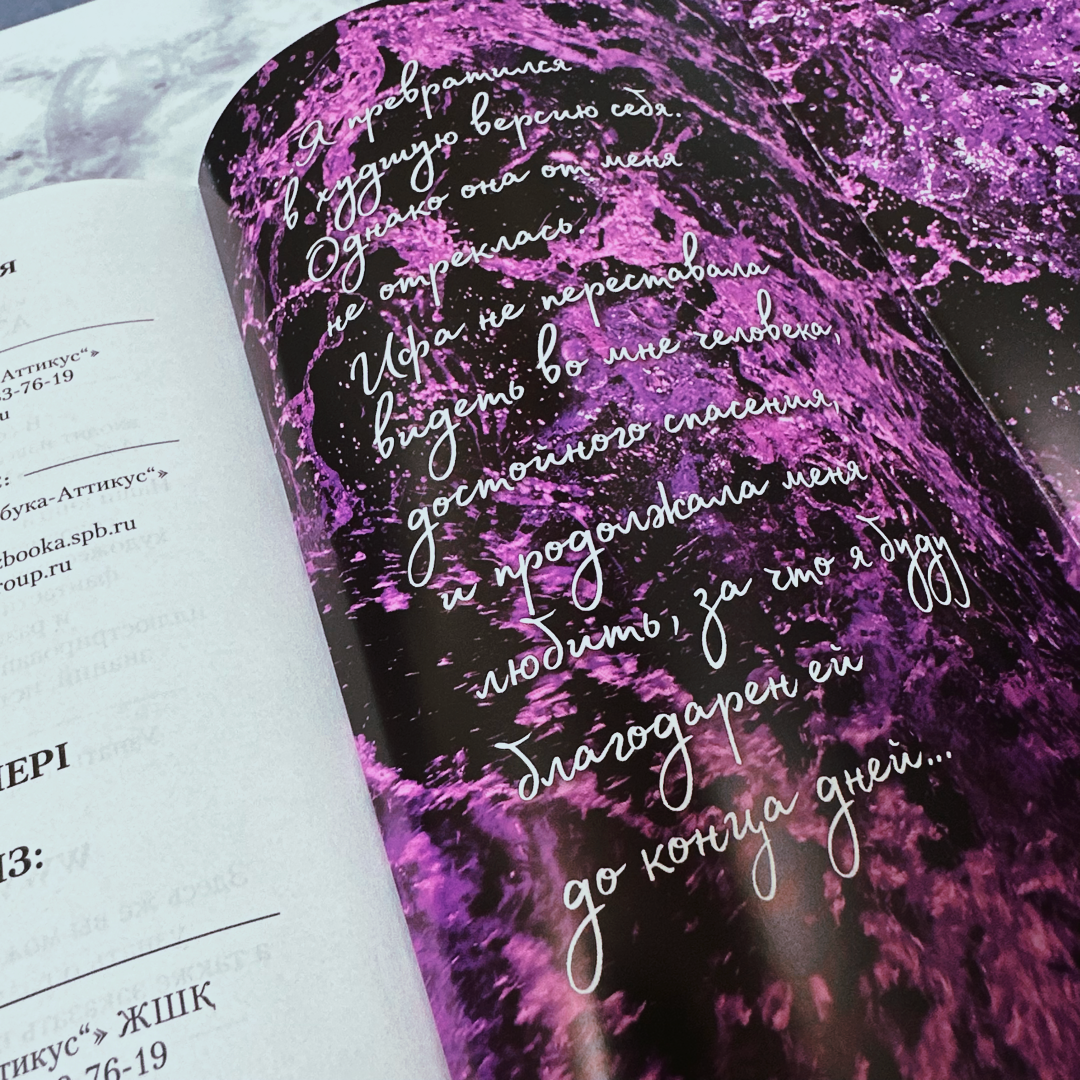 я
Аттикус“»
3-76-19
u
бука-Аттикус“»
booka.spb.ru
roup.ru
ЛЕРІ
ІЗ:
ттикус“» ЖШҚ
76-19
Я превратился
в худшую версию себя.
Однако она от меня
не отреклась.
Ифа не переставала
видеть во мне человека,
достойного спасения,
и продолжала меня
любить, за что я буду
благодарен ей
до конца дней...